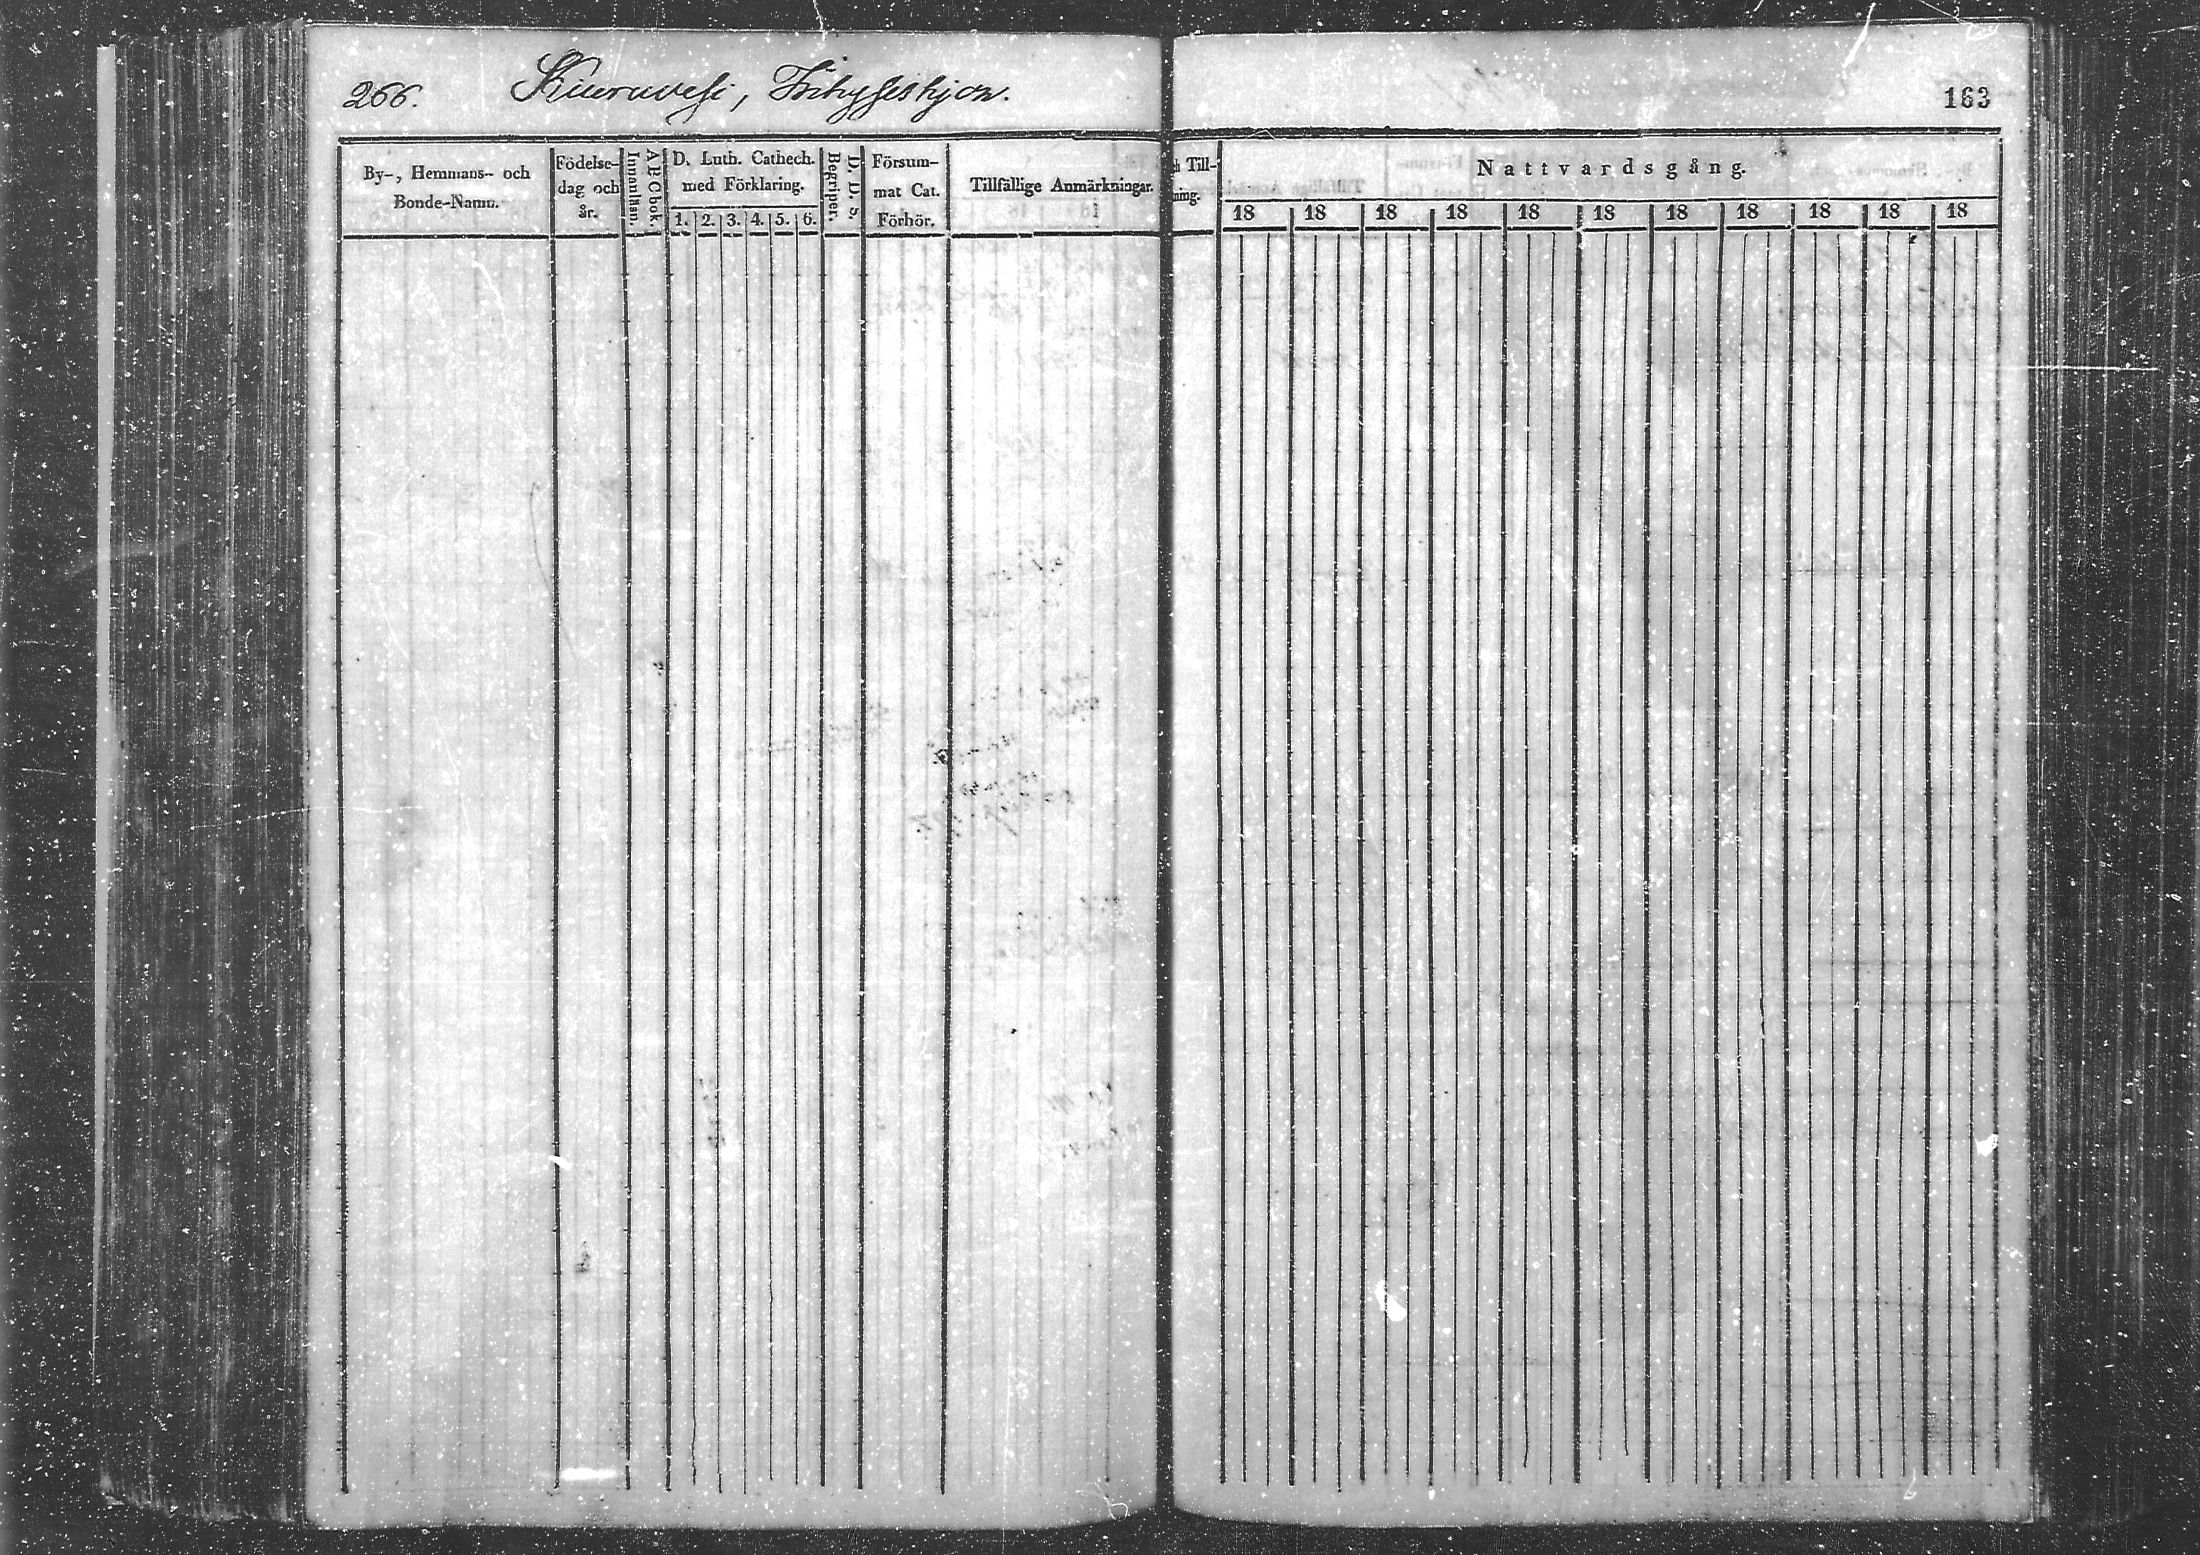 266. Kiuruvesi, Frihysleshjon.
163
By-, Hemmans- och
Bonde-Namn.
Födelse-
dag och
år.
ABCbok.
Innanläsn.
D. Luth. Cathech.
med Förklaring.
1. 2. 3. 4. 5. 6.
D. D. s.
Begriper.
Försum-
mat Cat.
Förhör.
Tillfällige Anmärkningar.
Till-
ning.
Nattvardsgång.
18 18 18 18 18 18 18 18 18 18 18